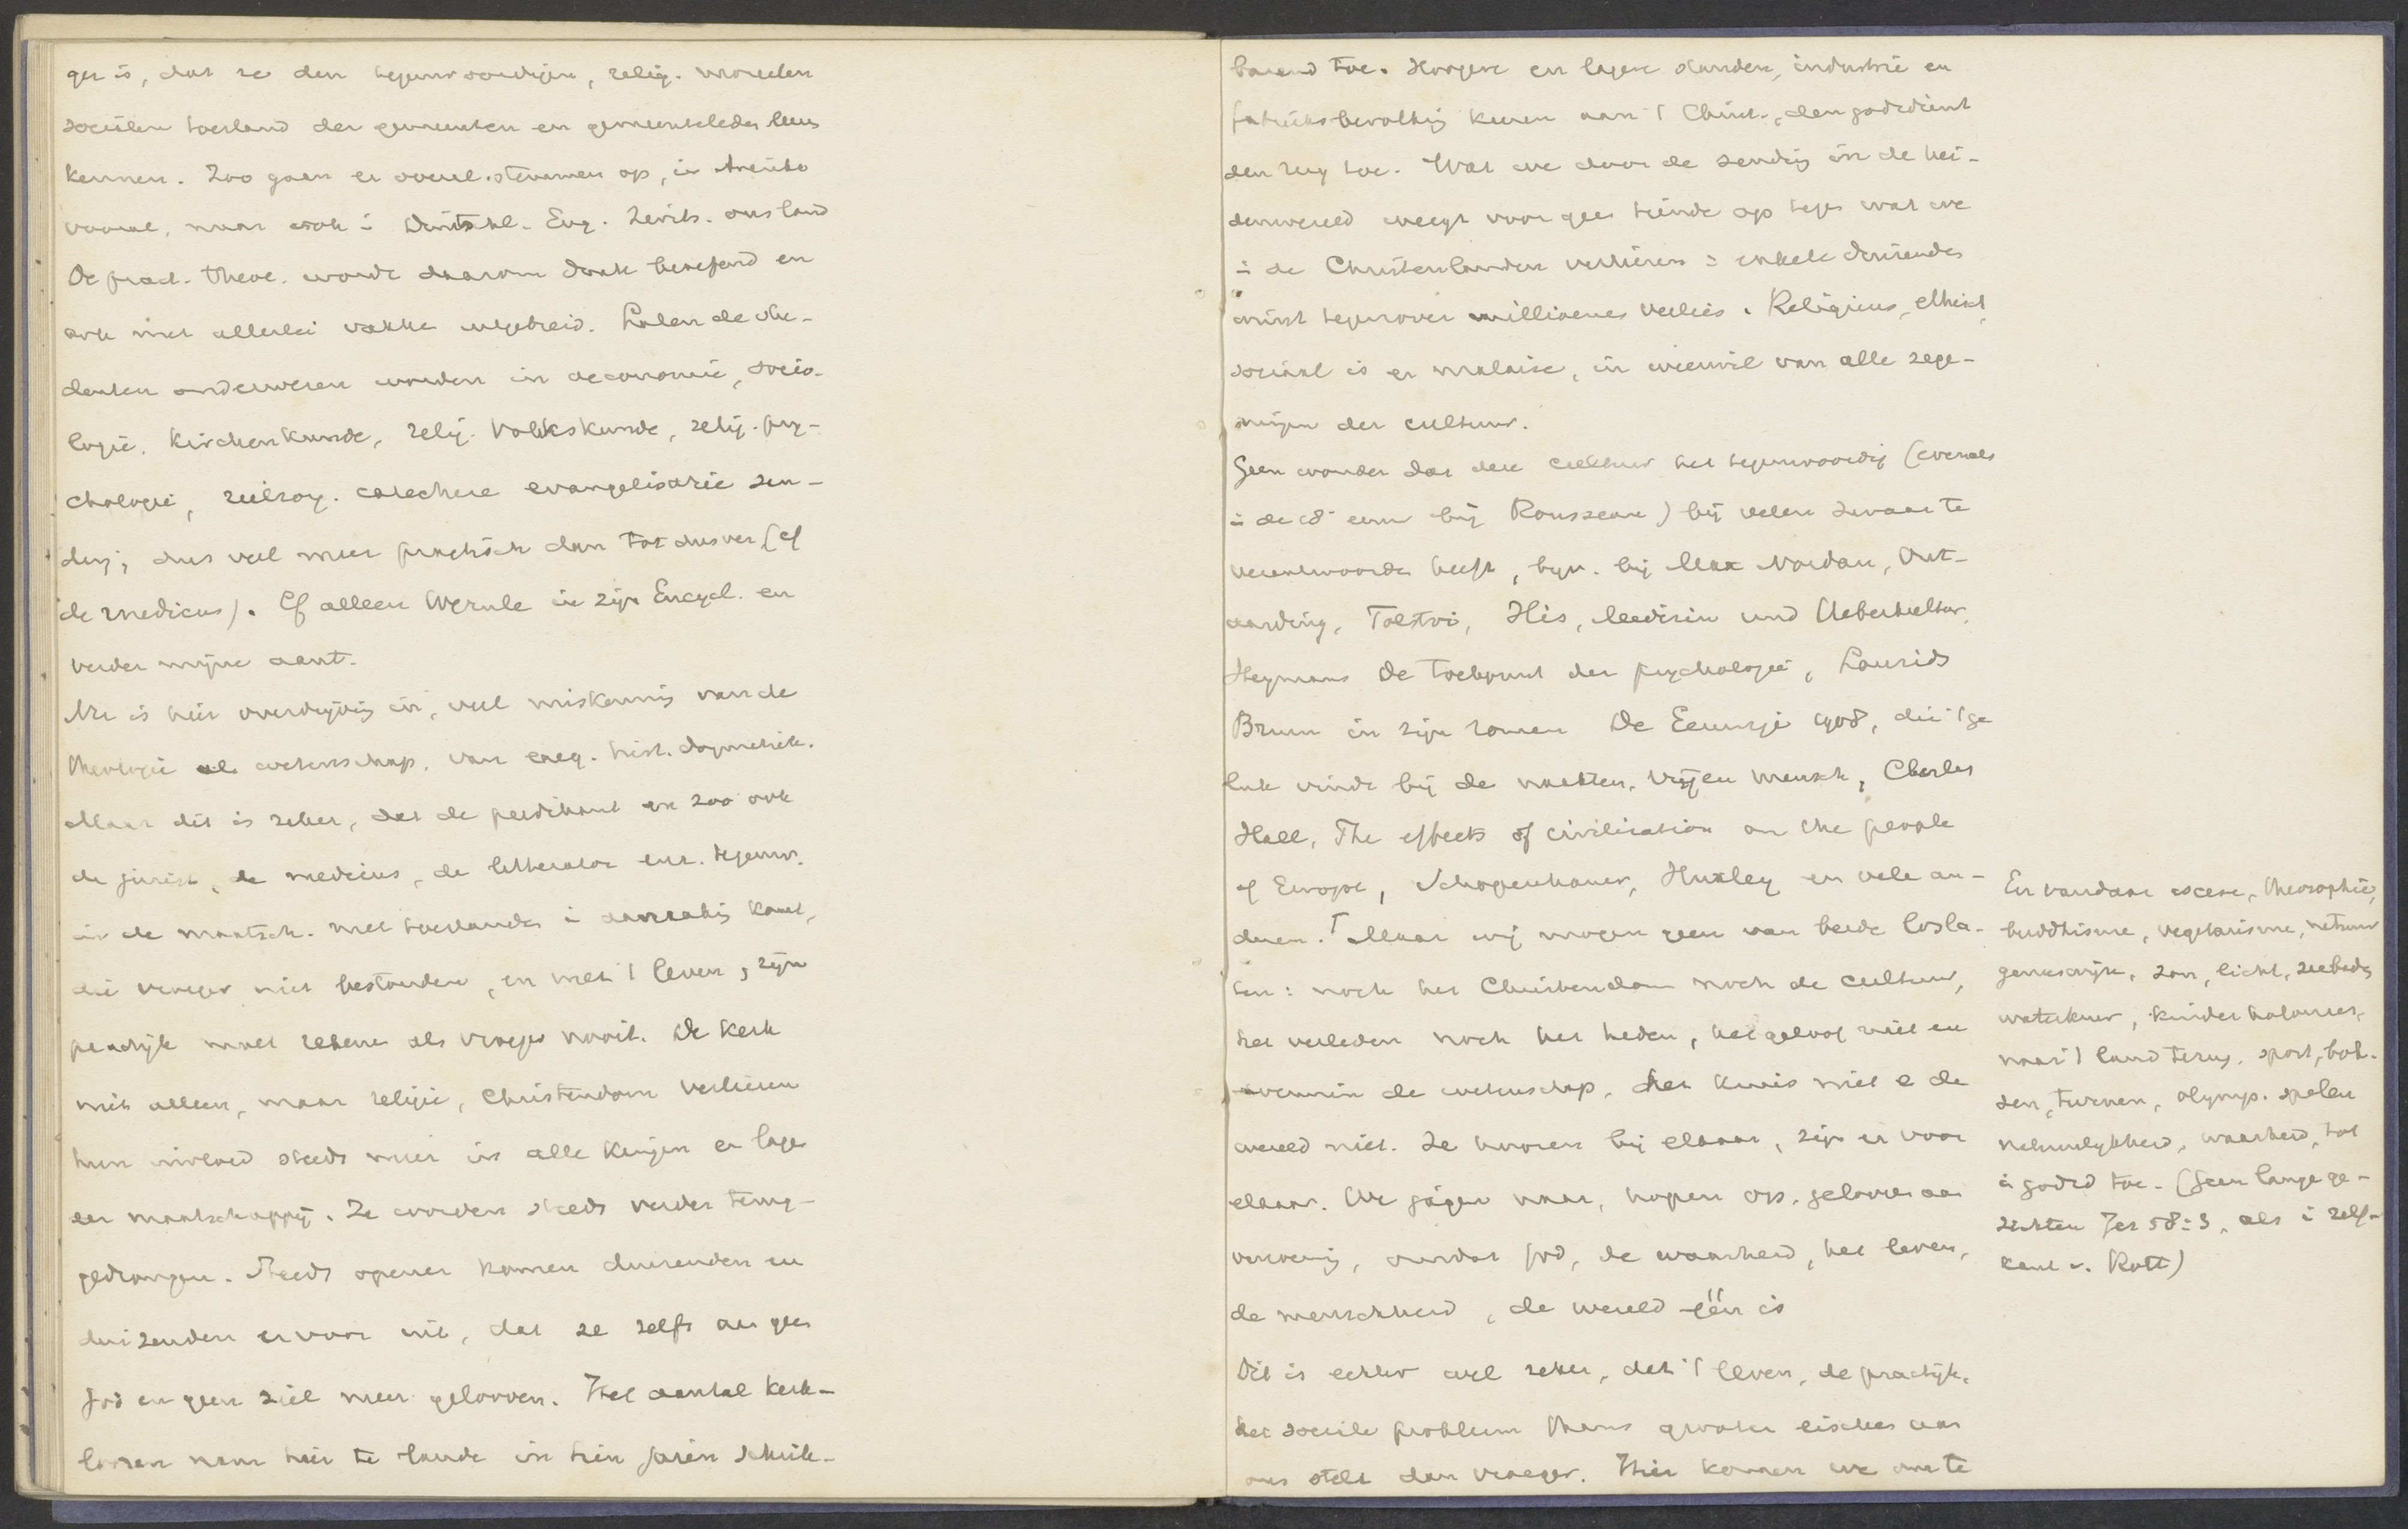 ger is, dat ze den tegenwoordigen, relig. moreelen
socialen toestand der gemeenten en gemeenteleden leeren
kennen. Zoo gaan er overal stemmen op, in Amerika
vooral, maar ook in Duitschl. Eng. Zwits. ons land
De pract. theol. worde daarom sterk beoefend en
ook met allerlei vakken uitgebreid. Laten de stu-
denten onderwezen worden in oeconomie, socio-
logie, Kirchenkunde, relig. Volkskunde, relig. psy-
chologie, zielzorg, catechese evangelisatie zen-
ding; dus veel meer practisch dan tot dusver (cf
de medicus). Cf alleen Wernle in zijn Encycl. en
verder mijne aant.
Nu is hier overdrijving in, veel miskenning van de
theologie als wetenschap, van exeg. hist. dogmatiek.
Maar dit is zeker, dat de predikant en zoo ook
de jurist, de medicus, de litterator enz. tegenw.
in de maatsch. met toestanden in aanraking komt,
die vroeger niet bestonden, en met 't leven, zijn
practijk moet rekenen als vroeger nooit. De kerk
niet alleen, maar religie, Christendom verliezen
hun invloed steeds meer in alle kringen en lagen
der maatschappij. Ze worden steeds verder terug-
gedrongen. Steeds opener komen duizenden en
duizenden er voor uit, dat ze zelfs aan geen
God en geen ziel meer gelooven. Het aantal kerk-
loozen nam hier te lande in tien jaren schrik-
barend toe. Hoogere en lagere standen, industrie en
fabrieksbevolking keeren aan 't Christ., den godsdienst
den rug toe. Wat we door de zending in de hei-
denwereld weegt voor geen tiende op tegen wat we
in de Christenlanden verliezen: enkele duizenden
winst tegenover millioenen verlies. Religieus, ethisch,
sociaal is er malaise, in weerwil van alle zege-
ningen der cultuur.
Geen wonder dat deze cultuur het tegenwoordig (evenals
in de 18e eeuw bij Rousseau) bij velen zwaar te
verantwoorden heeft, bijv. bij Max Nordau, Ont-
aarding, Tolstoi, His, Medizin und Ueberkultur,
Heymans De toekomst der psychologie, Laurids
Bruun in zijn roman De Eeuwige 1908, die 't ge
luk vindt bij de naakten, vrijen mensch, Charles
Hall, The effects of civilisation on the people
of Europe, Schopenhauer, Huxley en vele an-
deren. Maar wij mogen geen van beide losla-
ten: noch het Christendom noch de cultuur,
het verleden noch het heden, het geloof niet en
evenmin de wetenschap, het kruis niet en de
wereld niet. Ze hooren bij elkaar, zijn er voor
elkaar. We jagen naar, hopen op, gelooven aan
verzoening, omdat God, de waarheid, het leven,
de menschheid, de wereld één is
Dit is echter wel zeker, dat 't leven, de practijk,
het sociale probleem thans grooter eischen aan
ons stelt dan vroeger. Hier komen we om te
En vandaar ascese, theosophie,
buddhisme, vegetarisme, natuur
geneeswijze, zon, licht, zeebaden
waterkuur, kinderkolonies,
naar 't land terug, sport, bok-
sen, turnen, olymp. spelen
natuurlijkheid, waarheid, tot
in godsd toe. (Geen lange ge-
zichten Jes 58:3, als in
v. Rott)